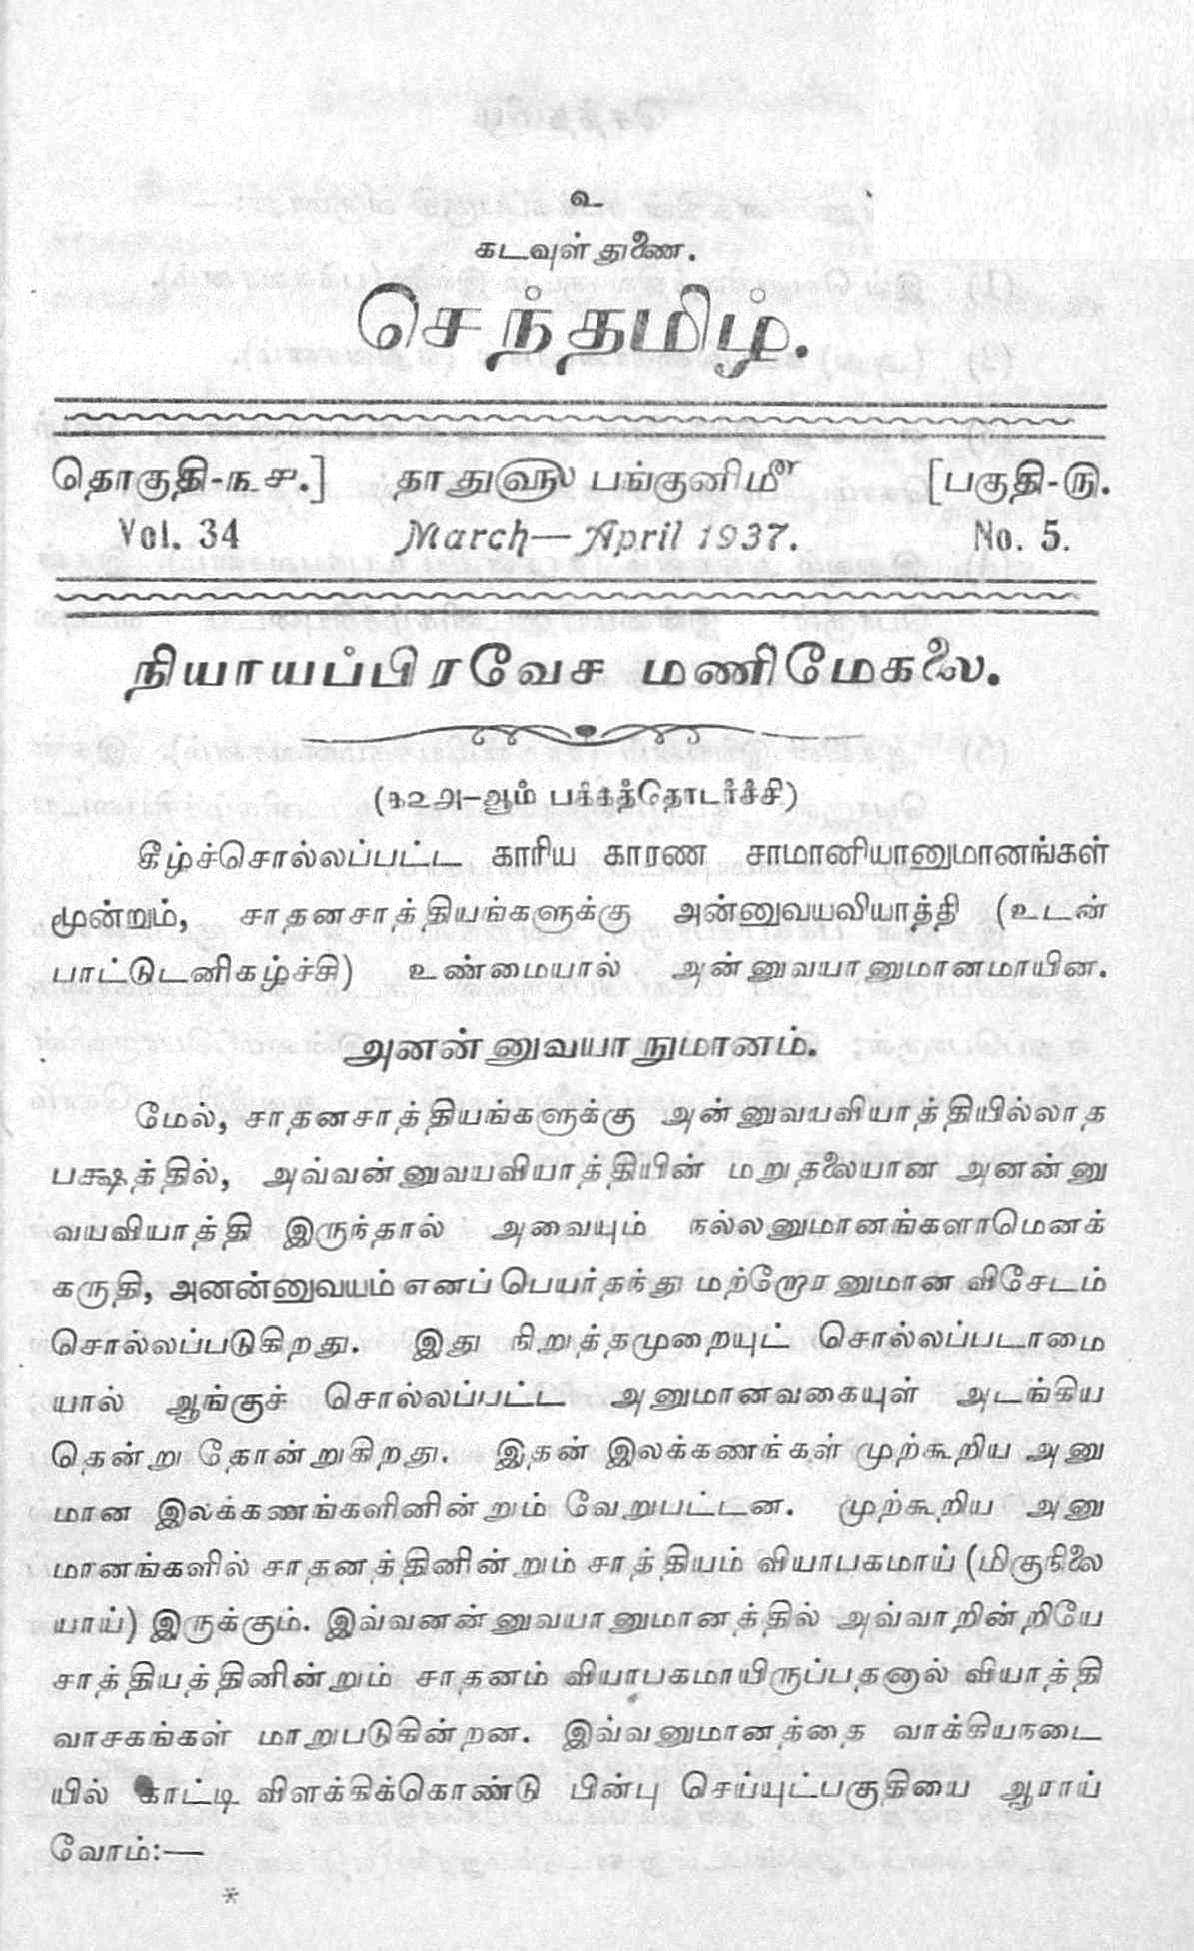 உ
கடவுள் துணை.
செந்தமிழ்.
தொகுதி-௩௪.] தாது௵ பங்குனி௴ [பகுதி-௫.
Vol. 34 March—April 1937. No. 5.
நியாயப்பிரவேச மணிமேகலை.
(௧௨௮-ஆம் பக்கத்தொடர்ச்சி)
கீழ்ச்சொல்லப்பட்ட காரிய காரண சாமானியானுமானங்கள்
மூன்றும், சாதனசாத்தியங்களுக்கு அன்னுவயவியாத்தி (உடன்
பாட்டுடனிகழ்ச்சி) உண்மையால் அன்னுவயானுமானமாயின.
அனன்னுவயாநுமானம்.
மேல், சாதனசாத்தியங்களுக்கு அன்னுவயவியாத்தியில்லாத
பக்ஷத்தில், அவ்வன்னுவயவியாத்தியின் மறுதலையான அனன்னு
வயவியாத்தி இருந்தால் அவையும் நல்லனுமானங்களாமெனக்
கருதி, அனன்னுவயம் எனப் பெயர்தந்து மற்றோரனுமான விசேடம்
சொல்லப்படுகிறது. இது நிறுத்தமுறையுட் சொல்லப்படாமை
யால் ஆங்குச் சொல்லப்பட்ட அனுமானவகையுள் அடங்கிய
தென்று தோன்றுகிறது. இதன் இலக்கணங்கள் முற்கூறிய அனு
மான இலக்கணங்களினின்றும் வேறுபட்டன. முற்கூறிய அனு
மானங்களில் சாதனத்தினின்றும் சாத்தியம் வியாபகமாய் (மிகுநிலை
யாய்) இருக்கும். இவ்வனன்னுவயானுமானத்தில் அவ்வாறின்றியே
சாத்தியத்தினின்றும் சாதனம் வியாபகமாயிருப்பதனால் வியாத்தி
வாசகங்கள் மாறுபடுகின்றன. இவ்வனுமானத்தை வாக்கியநடை
யில் காட்டி விளக்கிக்கொண்டு பின்பு செய்யுட்பகுதியை ஆராய்
வோம்:—
*